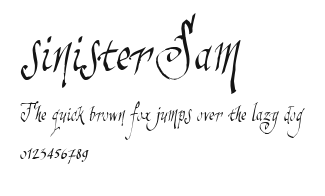 sinisterSam
The quick brown fox jumps over the lazy dog
0123456789